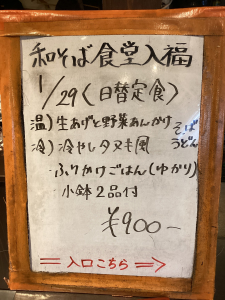 和そば食堂入福
1/29〈日替定食〉
温)生あげと野菜あんかけ そば
冷)冷やしタヌキ風 うどん
ふりかけごはん(ゆかり)
小鉢2品付
¥900-
= 入口こちら =>